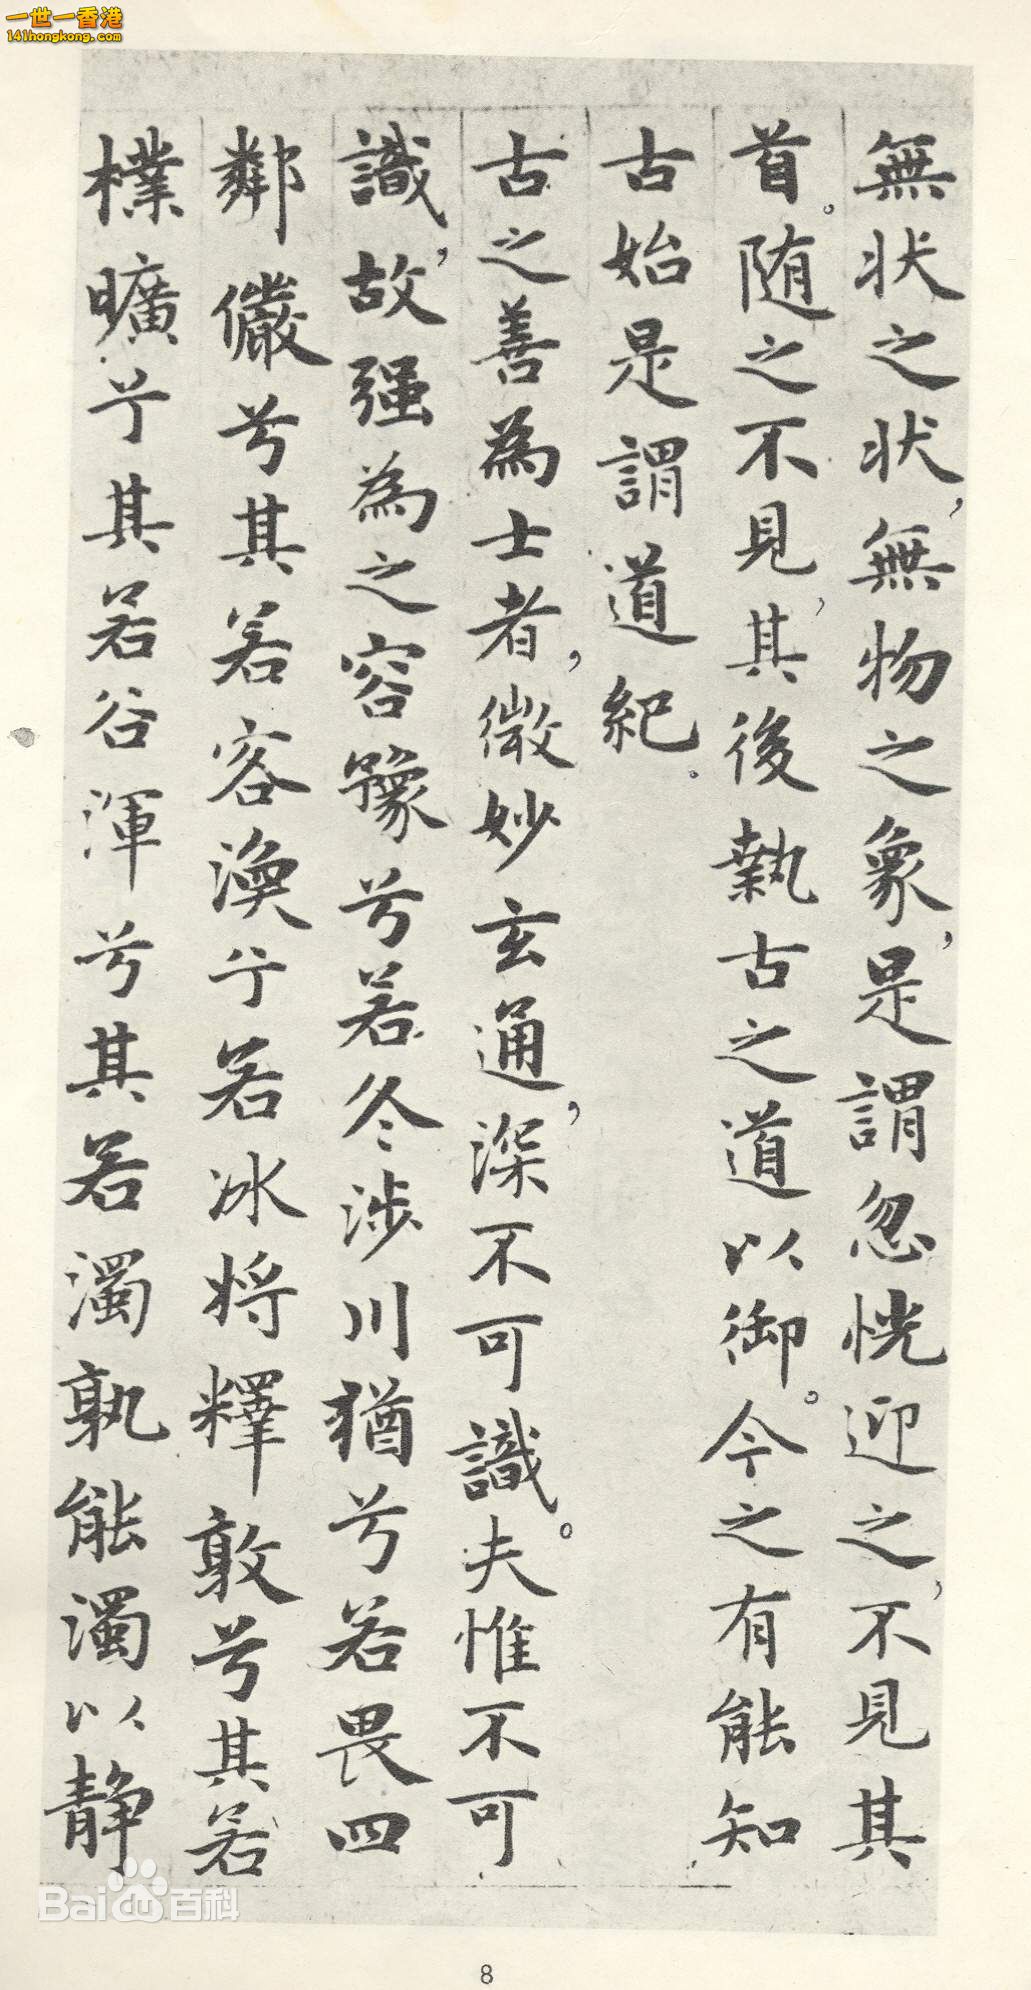 一世一香港
141hongkong.com
無状之状,無物之象,是謂忽恍迎之,不見其
首。随之不見,其後執古之道以御。今之有能知
古始是謂道紀。
古之善為士者,微妙玄通,深不可識。夫惟不可
識,故强為之容豫兮若冬涉川猶兮若畏四
鄰儼兮其若客渙兮若冰將釋敦兮其若
樸曠兮其若谷渾兮其若濁孰能濁以静
Bai百科
8